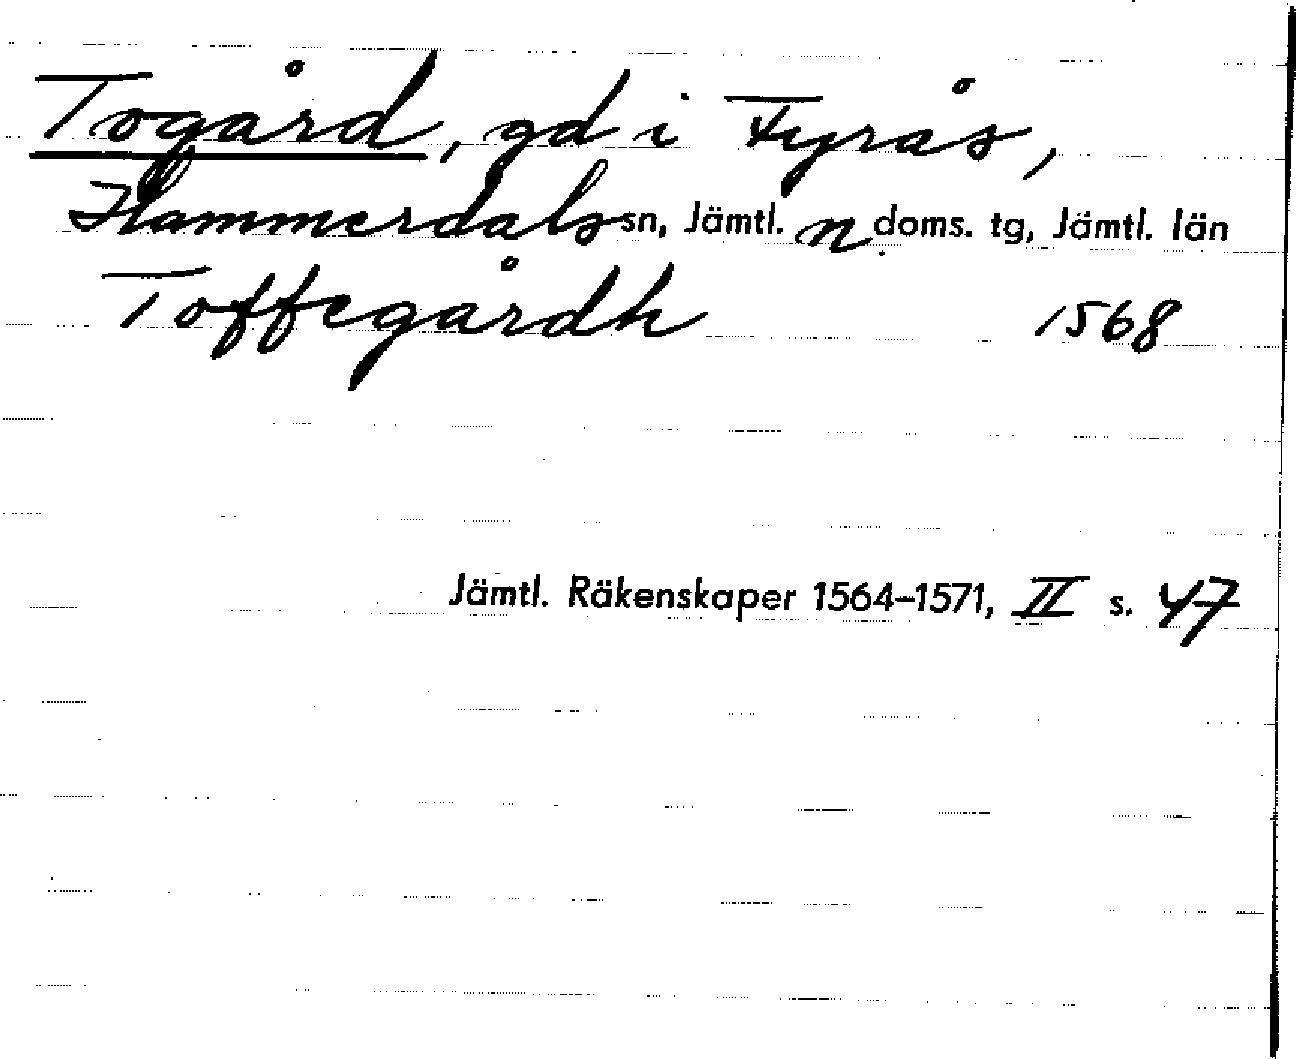 Togård, gd i Fyrås,
Hammerdals sn, Jämtl. n doms. tg, Jämtl. län
Toffegårdh 1568
Jämtl. Räkenskaper 1564–1571, II s. 47